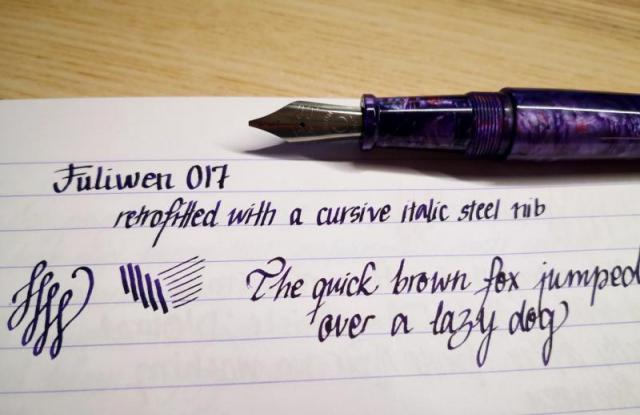 Fuliwen 017
retrofitted with a cursive italic steel nib
The quick brown fox jumped
over a lazy dog